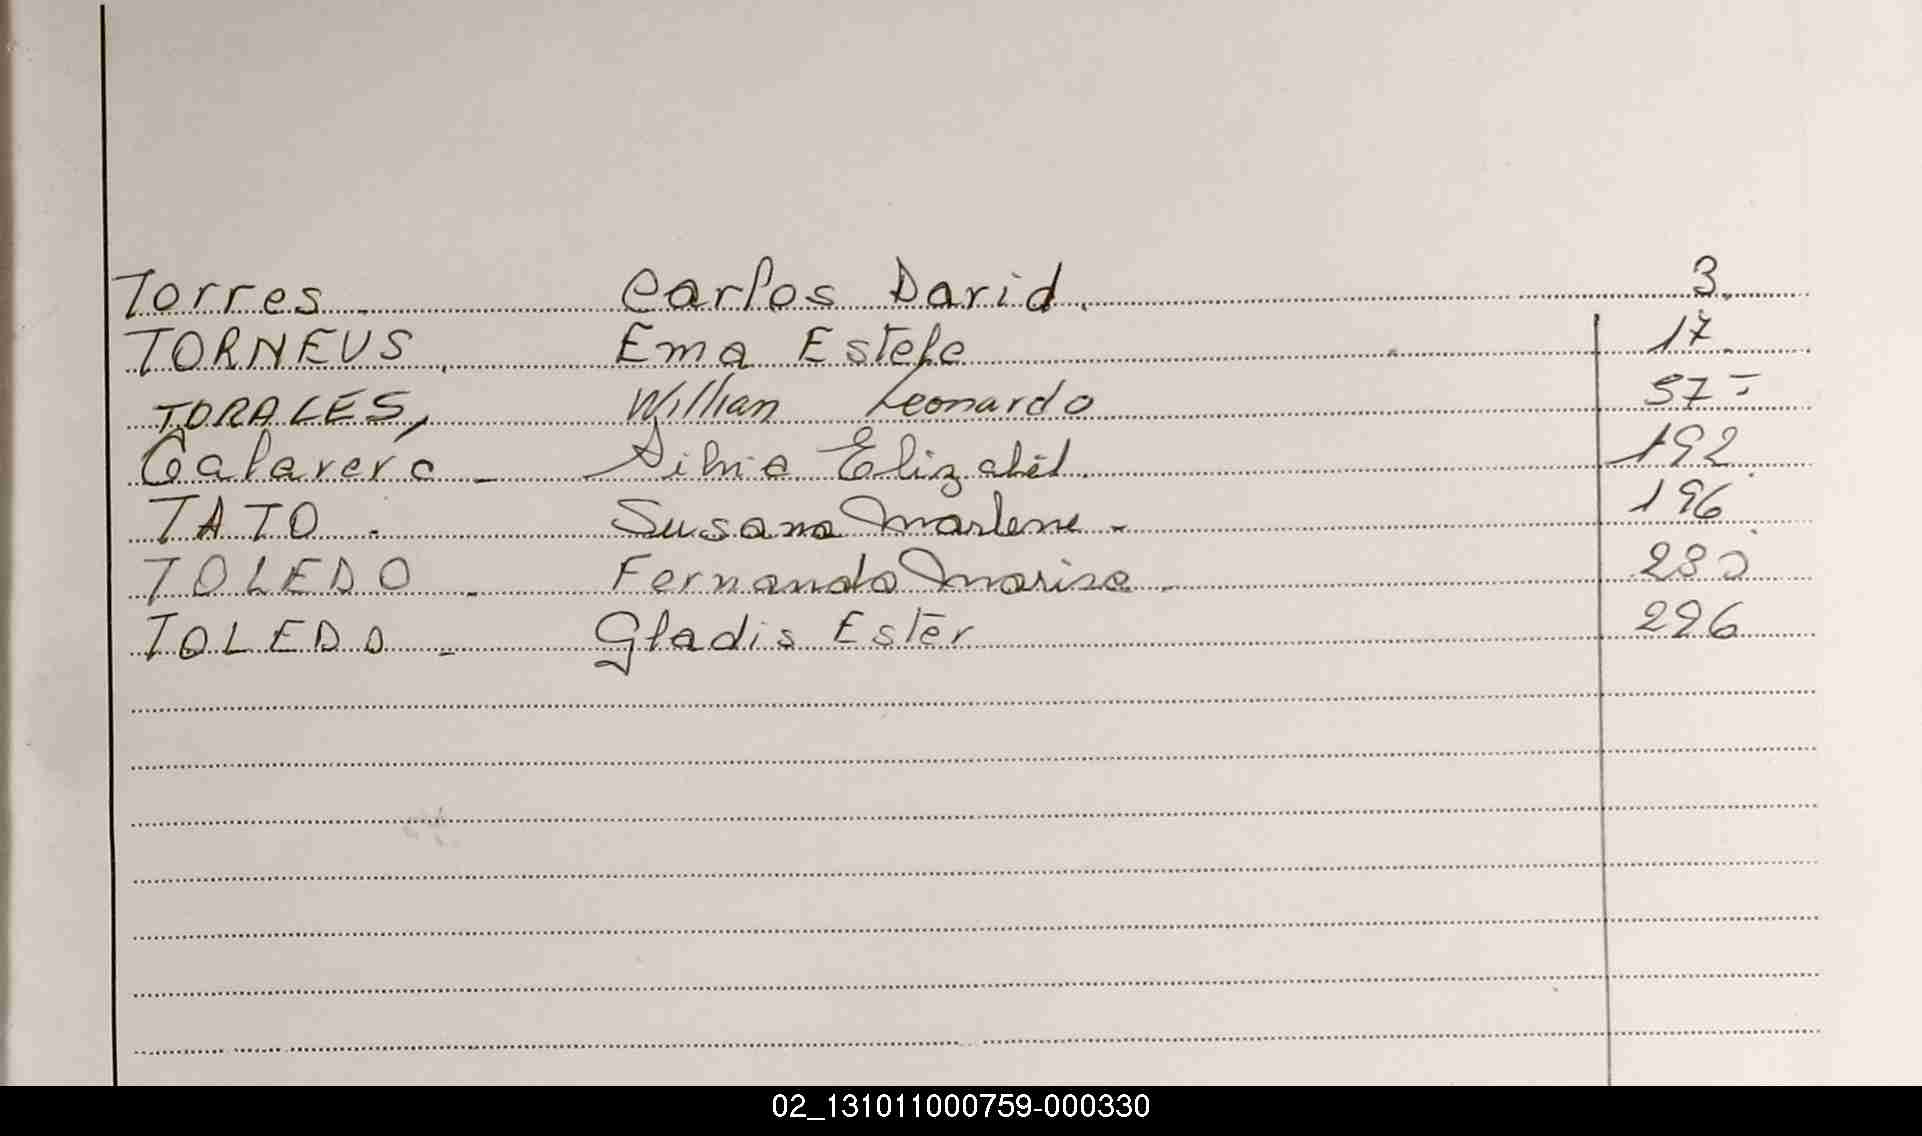 Torres Carlos David. 3.
TORNEUS. Ema Estele 17.
TORALES, Willian Leonardo 57-
Talavera - Silvia Elizabet. 192.
TATO. Susana Marlene - 196.
TOLEDO - Fernando Marise -
TOLEDO - Gladis Ester 296
02_131011000759-000330